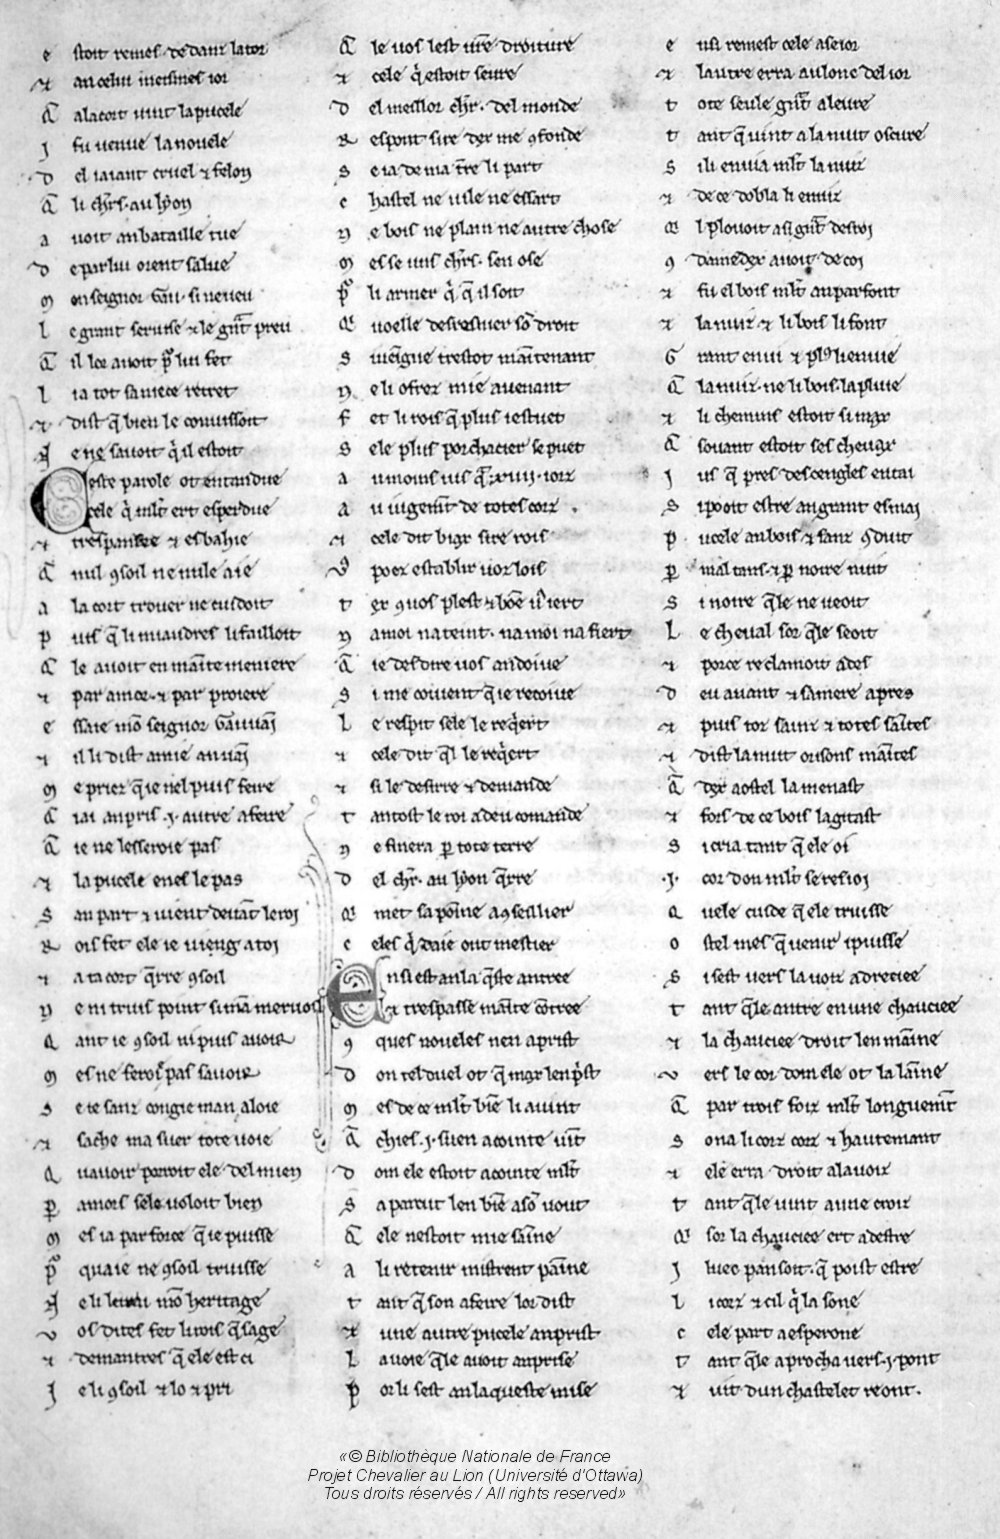 e stoit remes de danz la tor
⁊ an celui meismes ior
Q̃ a la cort vint la pucele
J fu venue la novele
D el iaiant cruel ⁊ felon
Q̃ li ch̃rs. au lyon
a voit an bataille tue
D e par lui orent salue
M on seignor Gau. si neveu
L e grant servise ⁊ le gñt preu
Q̃ il lor avoit p̃ lui fet
L i a tot sa niece retret
⁊ dist q̃ bien le conuissoit
⁊ e ne savoit q̓ il estoit
Ceste parole ot entandue
cele q̓ ml̃t ert esperdue
⁊ trespansee ⁊ esbahie
Q̃ nul ꝯsoil ne nule aie
a la cort trover ne cuidoit
P uis q̃ li miaudres li failloit
Q̃ le avoit en mainte meniere
⁊ par amor. ⁊ par proiere
e ssaie mõ seignor Gauvaĩ
⁊ il li dist amie an vaĩ
M e priez q̃ ie nel puis feire
Q̃ i ai anpris .j. autre afeire
Q̃ ie ne lesseroie pas
⁊ la pucele enes le pas
S an part ⁊ vient devãt le roi
R ois fet ele ie vieng a toi
⁊ a ta cort q̃rre ꝯsoil
N e ni truis point si mã mervoil
Q ant ie ꝯsoil ni puis avoir
M es ne feroie pas savoir
S e ie sanz congie man aloie
⁊ sache ma suer tote voie
Q u avoir porroit ele del mien
ꝑ amors sele voloit bien
M es ia par force q̃ ie puisse
p̃ qu aie ne ꝯsoil truisse
⁊ e li leirai mõ heritage
V os dites fet li rois q̃ sage
⁊ demantres q̃ ele est ci
J e li ꝯsoil ⁊ lo ⁊ pri
Q̃ le vos lest vr̃e droiture
⁊ cele q̓ estoit seure
D el meillor ch̃r. del monde
R espont sire dex me ꝯfonde
S e ia de ma t̃re li part
C hastel ne vile ne essart
N e bois ne plain ne autre chose
M es se uns ch̃rs. sen ose
p̃ li armer q̓ q̃ il soit
Q̓ voelle desresnier sõ droit
S i viengne trestot maĩtenant
N e li ofrez mie avenant
F et li rois q̃ plus i estuet
S ele plus porchacier se puet
a u moins uis q̃ .xiiii. iorz
a u iugem̃t de totes corz
⁊ cele dit biax sire rois
V̓ poez establir voz lois
T ex ꝯ vos plest ⁊ boẽ v̓ iert
N a moi na teint. na moi na fiert
Q̃ ie desdire vos an doive
S i me covient q̃ ie recoive
L e respit sele le req̓ert
⁊ cele dit q̃l le req̓ert
⁊ si le desirre ⁊ demande
T antost le roi a deu comande
N e finera ꝑ tote terre
D el ch̃r. au lyon q̃rre
Q̓ met sa poĩne a ꝯseillier
C eles q̓ daie ont mestier
Ensi est an la q̃ste antree
⁊ trespasse mãte cõtree
ꝯ ques noveles nen aprist
D on tel duel ot q̃ max len p̓st
M es de ce ml̃t biẽ li avint
Q̃ chies .j. suen acointe vĩt
D om ele estoit acointe ml̃t
S aparcut len biẽ a sõ vout
Q̃ ele nestoit mie saĩne
a li retenir mistrent paĩne
T ant q̃ son afeire lor dist
⁊ une autre pucele anprist
L a voie q̃le avoit anprise
P or li sest an la queste mise
E nsi remest cele a seior
⁊ lautre erra au lonc del ior
T ote seule gñt aleure
T ant q̃ vint a la nuit oscure
S i li enuia ml̃t la nuiz
⁊ de ce dobla li enuiz
Q̓ l plovoit a si gñt desroi
ꝯ damedex avoit de coi
⁊ fu el bois ml̃t au parfont
⁊ la nuiz ⁊ li bois li font
G rant enui ⁊ plꝰ li enuie
Q̃ la nuiz. ne li bois. la pluie
⁊ li chemins estoit si max
Q̃ sovant estoit ses chevax
J us q̃ pres des cengles en tai
S i pooit estre an grant esmai
P ucele au bois. ⁊ sanz ꝯduit
ꝑ mal tans. ⁊ ꝑ noire nuit
S i noire q̃le ne veoit
L e cheval sor q̃le seoit
⁊ por ce reclamoit ades
D eu avant ⁊ sa mere apres
⁊ puis toz sainz ⁊ totes saĩtes
⁊ dist la nuit orisons maĩtes
Q̃ dex a ostel la menast
⁊ fors de ce bois la gitast
S i cria tant q̃ ele oi
.J. cor don ml̃t se resioi
Q uele cuide q̃ ele truisse
O stel mes q̃ venir i puisse
S i sest vers la voiz adreciee
T ant q̃le antre en une chauciee
⁊ la chauciee droit len maĩne
V ers le cor dom ele ot la laĩne
Q̃ par trois foiz ml̃t longuem̃t
S ona li corz corz ⁊ hautemant
⁊ ele erra droit a la voiz
T ant q̃le vint a une croiz
Q̓ sor la chauciee ert a destre
J luec pansoit. q̃ poist estre
L i corz ⁊ cil q̓ la sone
C ele part a esperone
T ant q̃le aprocha vers .j. pont
⁊ vit dun chastelet reont.
«© Bibliothèque Nationale de France
Projet Chevalier au Lion (Université d'Ottawa)
Tous droits réservés / All rights reserved»